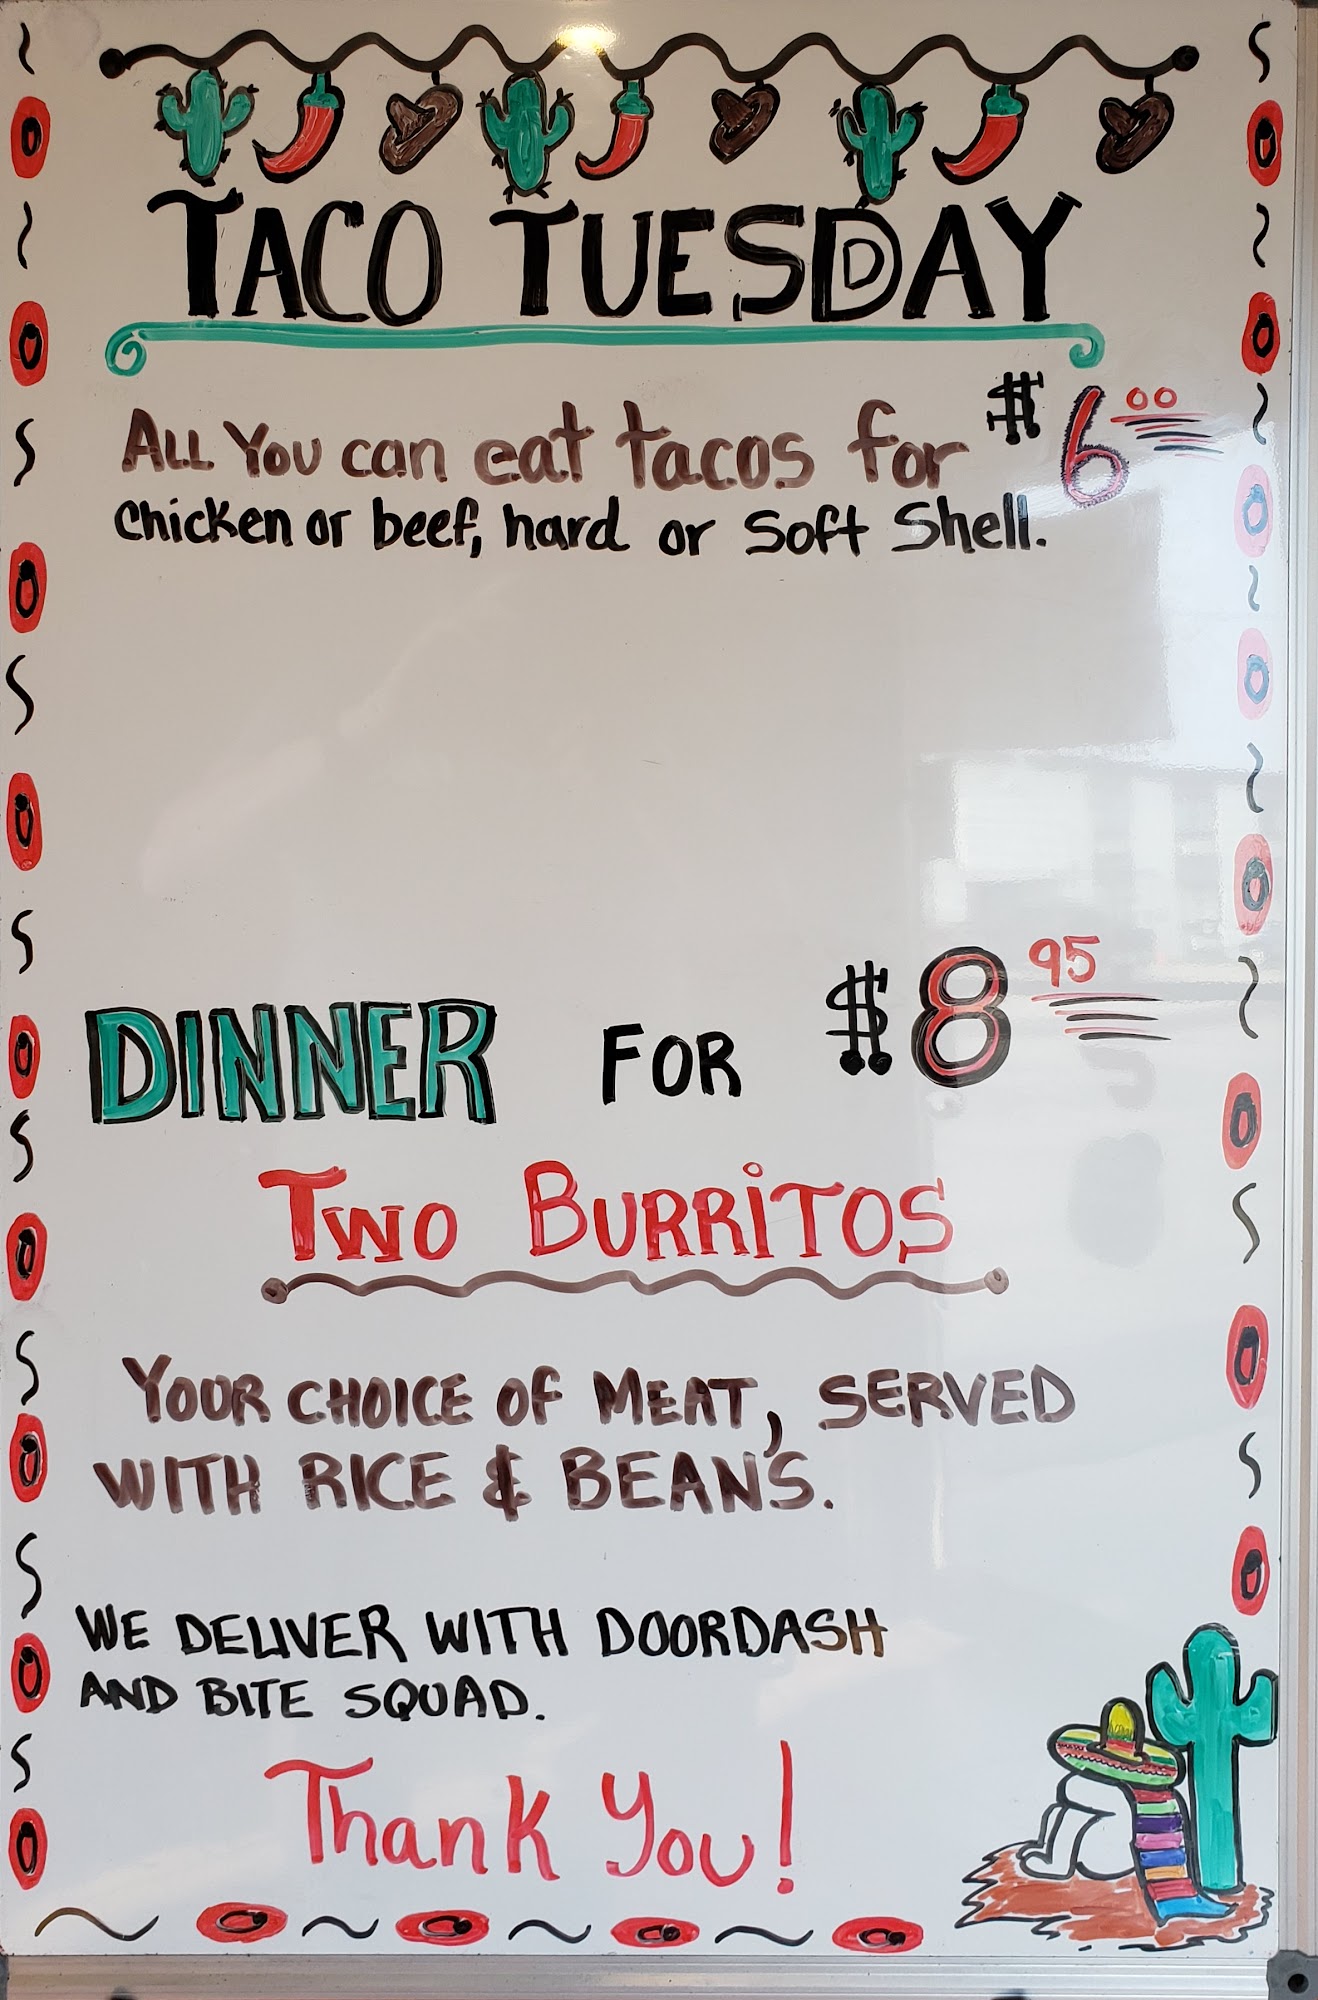 TACO TUESDAY
ALL YOU can eat tacos for $6.00
chicken or beef, hard or Soft Shell.
DINNER FOR $8.95
TWO BURRiTOS
YOUR CHOICE OF MEAT, SERVED
WITH RICE & BEANS.
WE DELIVER WITH DOORDASH
AND BITE SQUAD.
Thank You!